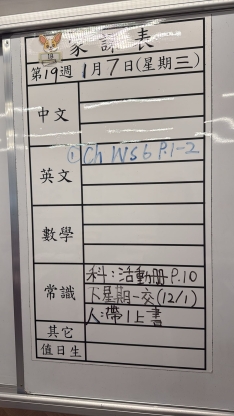 家課表
第19週 1月7日(星期三)
中文
① Ch Ws 6 P.1-2
英文
數學
科:活動冊P.10
常識 下星期一交(12/1)
人:帶1上書
其它
值日生